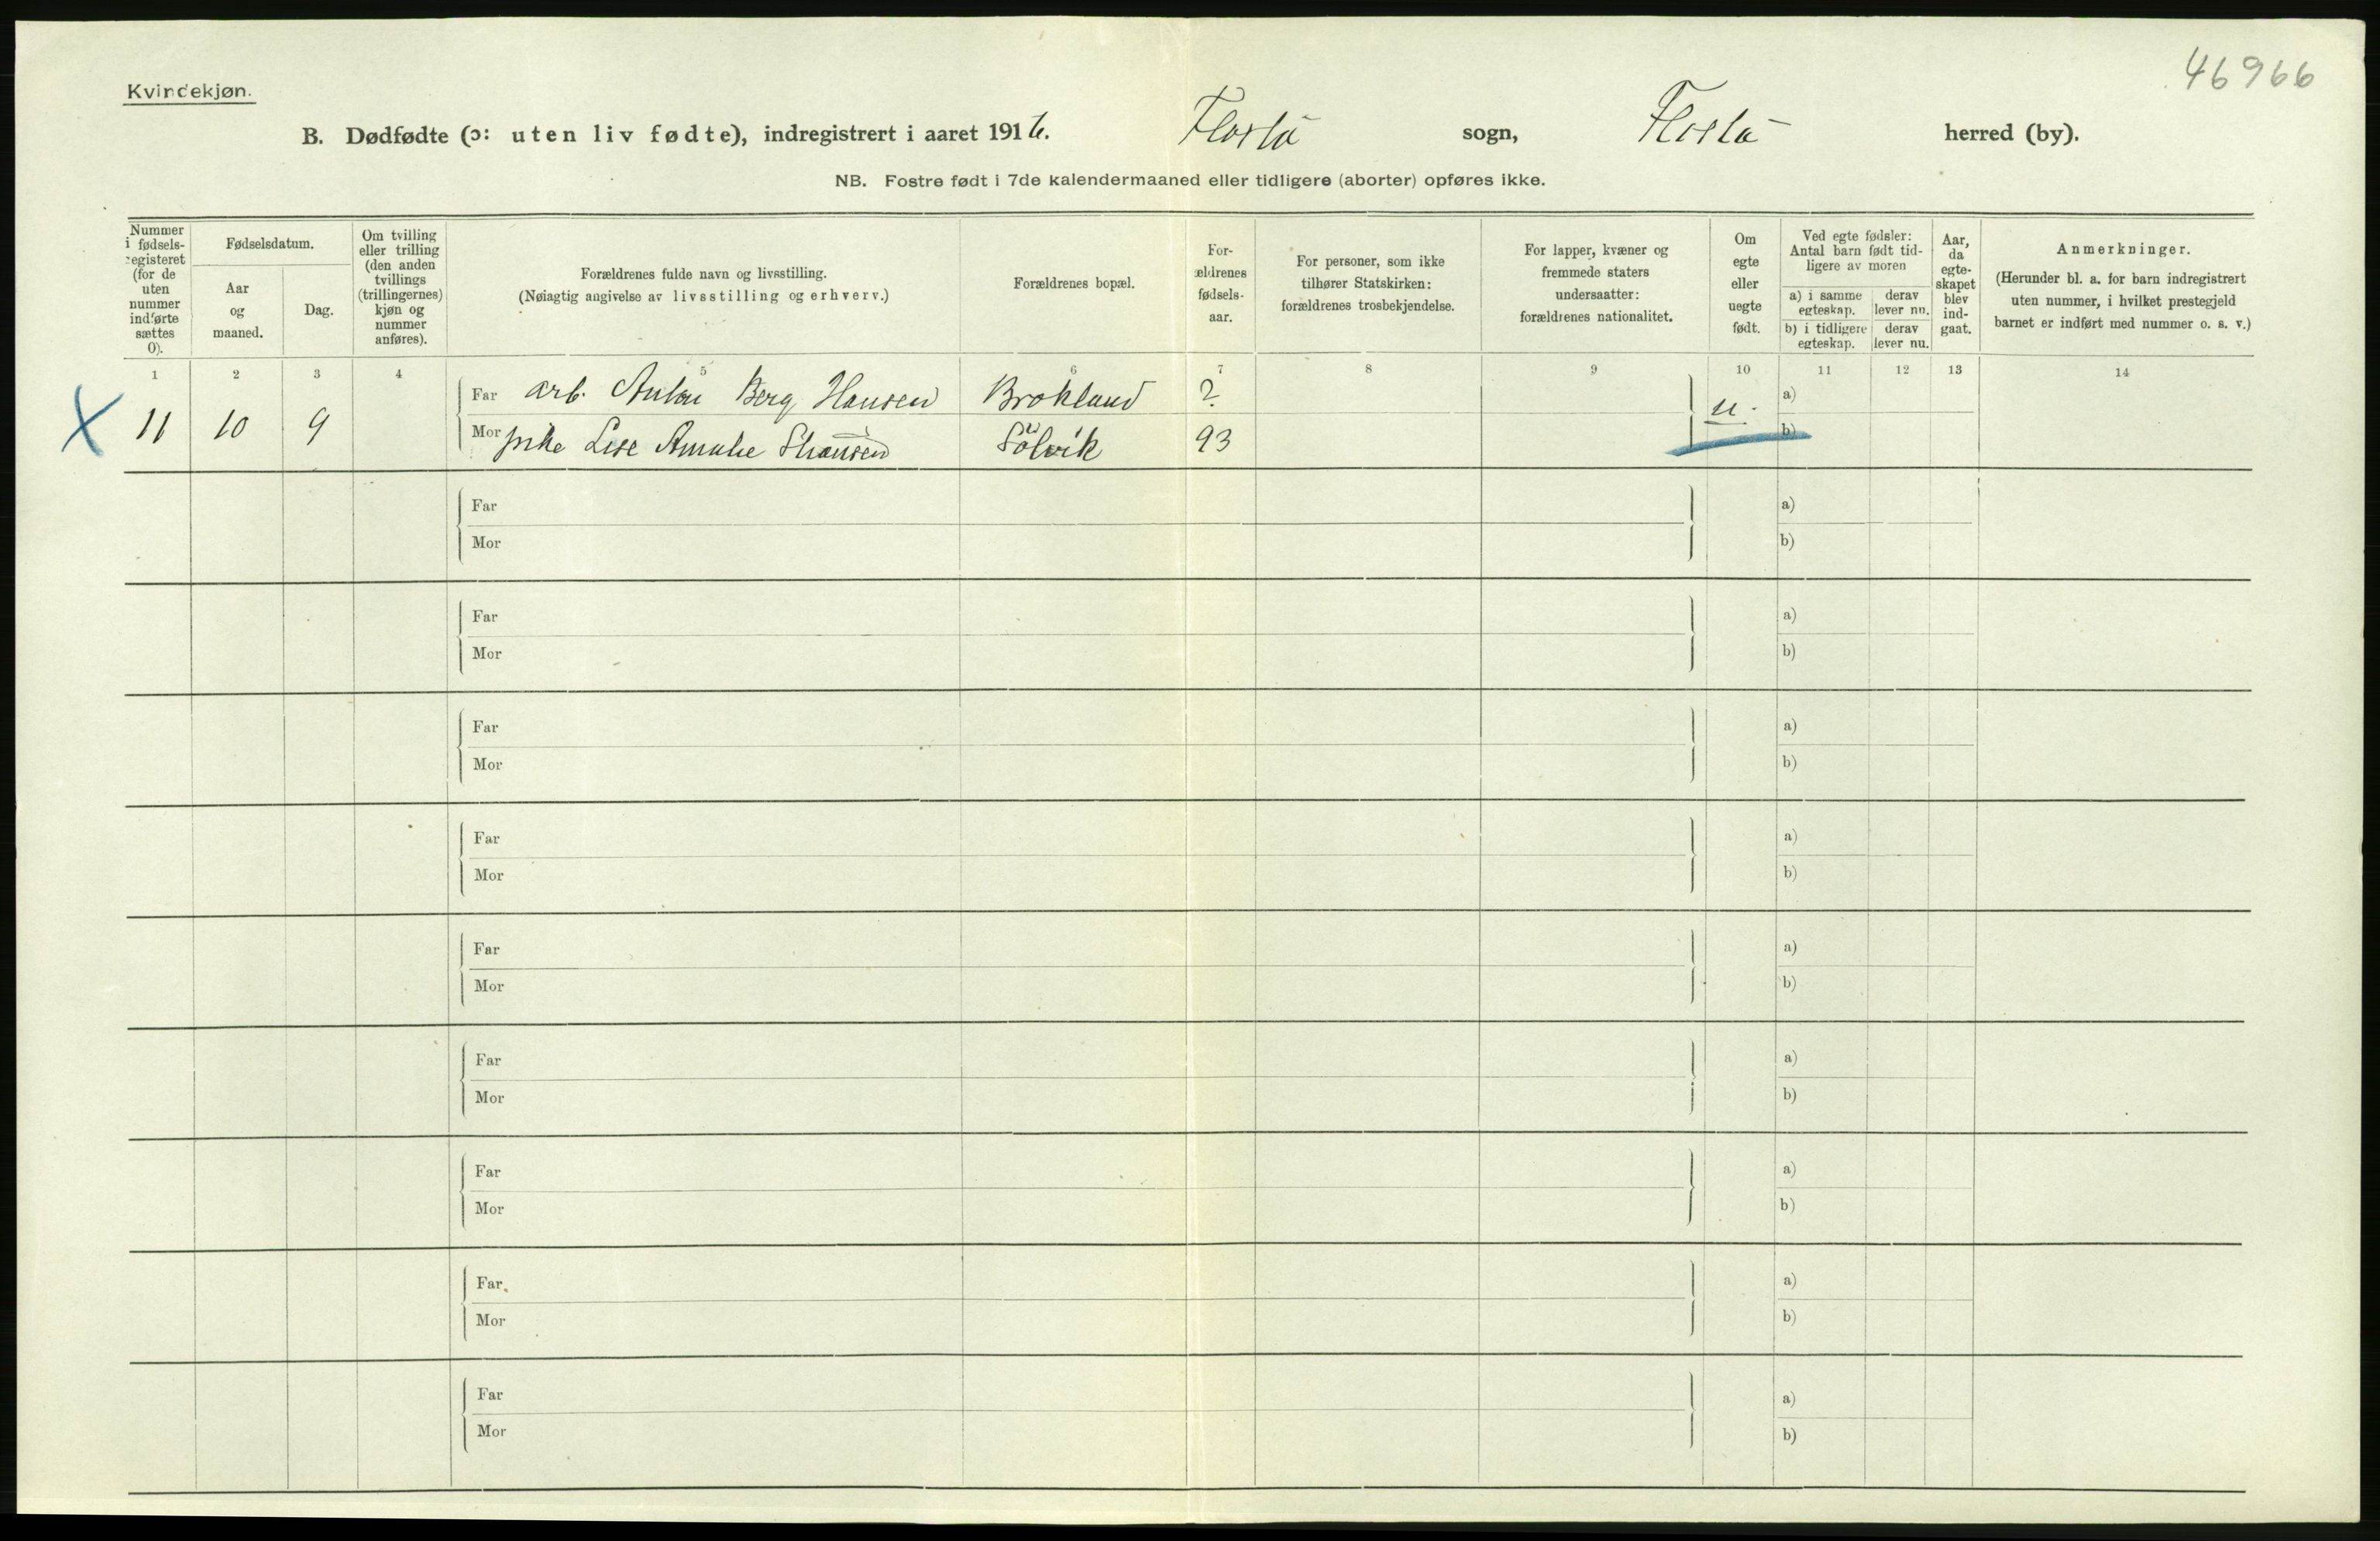 46966
Kvindekjøn.
B. Dødfødte (ɔ: uten liv fødte), indregistrert i aaret 1916. Flosta sogn, Flosta herred (by).
NB. Fostre født i 7de kalendermaaned eller tidligere (aborter) opføres ikke.
Nummer
i fødsels-
registeret
(for de
uten
nummer
indførte
sættes
0).
Fødselsdatum.
Aar
og
maaned.
Dag.
Om tvilling
eller trilling
(den anden
tvillings
(trillingernes)
kjøn og
nummer
anføres).
Forældrenes fulde navn og livsstilling.
(Nøiagtig angivelse av livsstilling og erhverv.)
Forældrenes bopæl.
For-
ældrenes
fødsels-
aar.
For personer, som ikke
tilhører Statskirken:
forældrenes trosbekjendelse.
For lapper, kvæner og
fremmede staters
undersaatter:
forældrenes nationalitet.
Om
egte
eller
uegte
født.
Ved egte fødsler:
Antal barn født tid-
ligere av moren
a) i samme
egteskap.
derav
lever nu.
b) i tidligere
egteskap.
derav
lever nu.
Aar,
da
egte-
skapet
blev
ind-
gaat.
Anmerkninger.
(Herunder bl. a. for barn indregistrert
uten nummer, i hvilket prestegjeld
barnet er indført med nummer o. s. v.)
1 2 3 4 5 6 7 8 9 10 11 12 13 14
Far arb. Anton Berg Hansen Brokland ? a)
X 11 10 9 u.
Mor pike Lise Amalie Sølvik 93 b)
Far a)
Mor b)
Far a)
Mor b)
Far a)
Mor b)
Far a)
Mor b)
Far a)
Mor b)
Far a)
Mor b)
Far a)
Mor b)
Far a)
Mor b)
Far a)
Mor b)